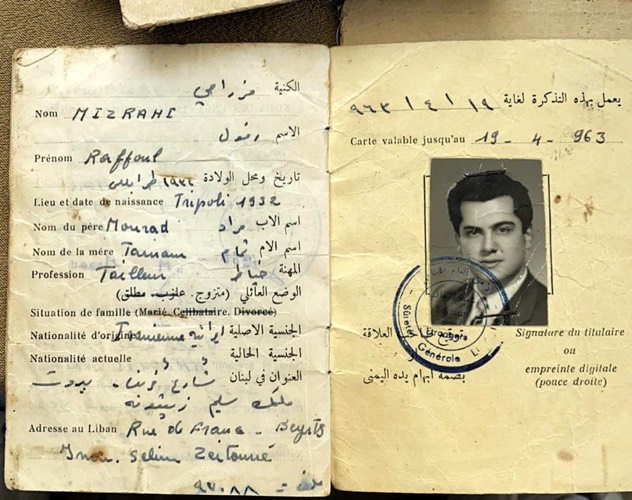 الكنية مزراحي
Nom MIZRAHI
الاسم رفول
Prénom Raffoul
تاريخ ومحل الولادة طرابلس
Lieu et date de naissance Tripoli 1932
اسم الاب مراد
Nom du père Mourad
اسم الام
Nom de la mère
المهنة خياط
Profession Tailleur
الوضع العائلي (متزوج. عازب. مطلق)
Situation de famille (Marié. Celibataire. Divorcé)
الجنسية الاصلية ايرانية
Nationalité d'origine Iranienne
الجنسية الحالية
Nationalité actuelle
العنوان في لبنان شارع فرنسا - بيروت
ملك سليم زيتونه
Adresse au Liban Rue de France - Beyrth
Imm. Selim Zeitouné
يعمل بهذه التذكرة لغاية ١٩ / ٤ / ٩٦٣
Carte valable jusqu'au 19 - 4 - 963
Sûreté Générale
العلاقة
بصمة ابهام يده اليمنى
Signature du titulaire
ou
empreinte digitale
(pouce droite)